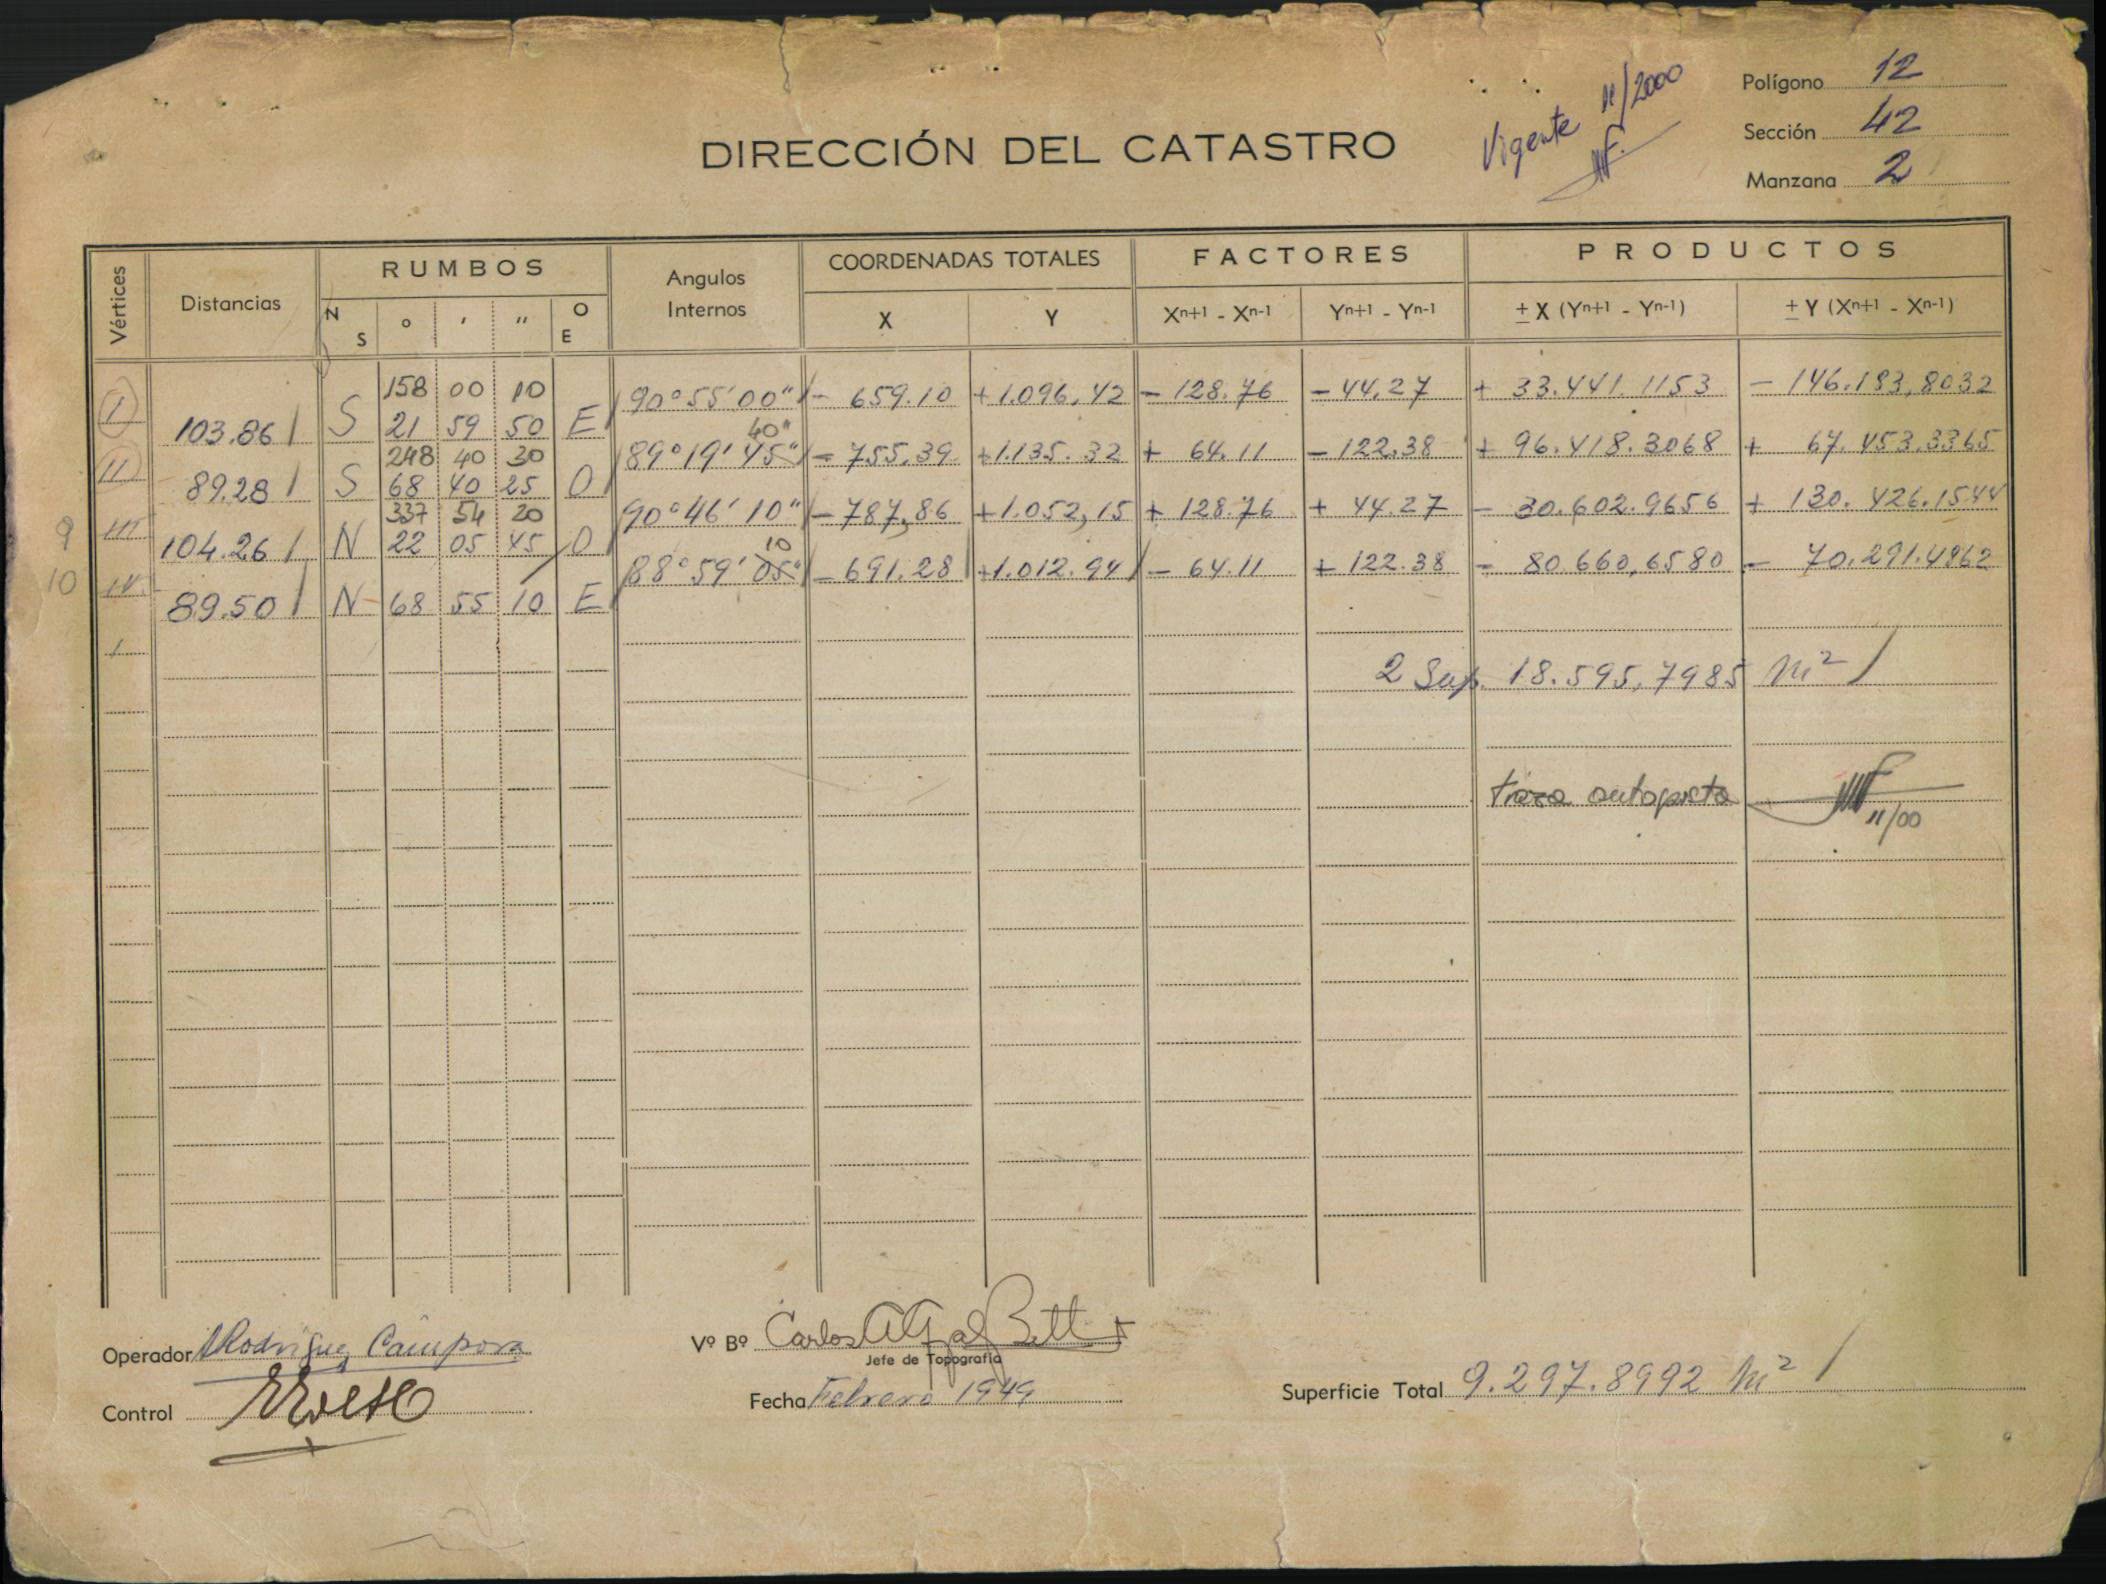 Polígono 12
Vigente 11/2000
Sección 42
DIRECCIÓN DEL CATASTRO
Manzana 2
Vértices Distancias RUMBOS Angulos Internos COORDENADAS TOTALES FACTORES PRODUCTOS
N S ° ' '' O E X Y Xn+1 - Xn-1 Yn+1 - Yn-1 ± X (Yn+1 - Yn-1) ± Y (Xn+1 - Xn-1)
158 00 10
I 90°55'00" - 659.10 +1.096,42 - 128.76 - 44.27 + 33.441.1153 - 146.183,8032
103.86 S 21 59 50 E
40"
248 40 30
II 89°19'45" - 755,39 +1.135.32 + 64.11 - 122.38 + 96.418.3068 + 67.453.3365
89.28 S 68 40 25 O
337 54 20
9 III 90°46'10" - 787,86 +1.052,15 + 128.76 + 44.27 - 30.602.9656 + 130.426.1544
104.26 N 22 05 45 O
10
10 IV 88°59'05" - 691.28 +1.012.94 - 64.11 + 122.38 - 80.660,6580 - 70.291.4962
89.50 N 68 55 10 E
I
2 Sup. 18.595,7985 m²
traza autopista
11/00
Operador Rodriguez Cámpora
Vº Bº Carlos
Jefe de Topografía
Control
Fecha Febrero 1949
Superficie Total 9.297.8992 m²